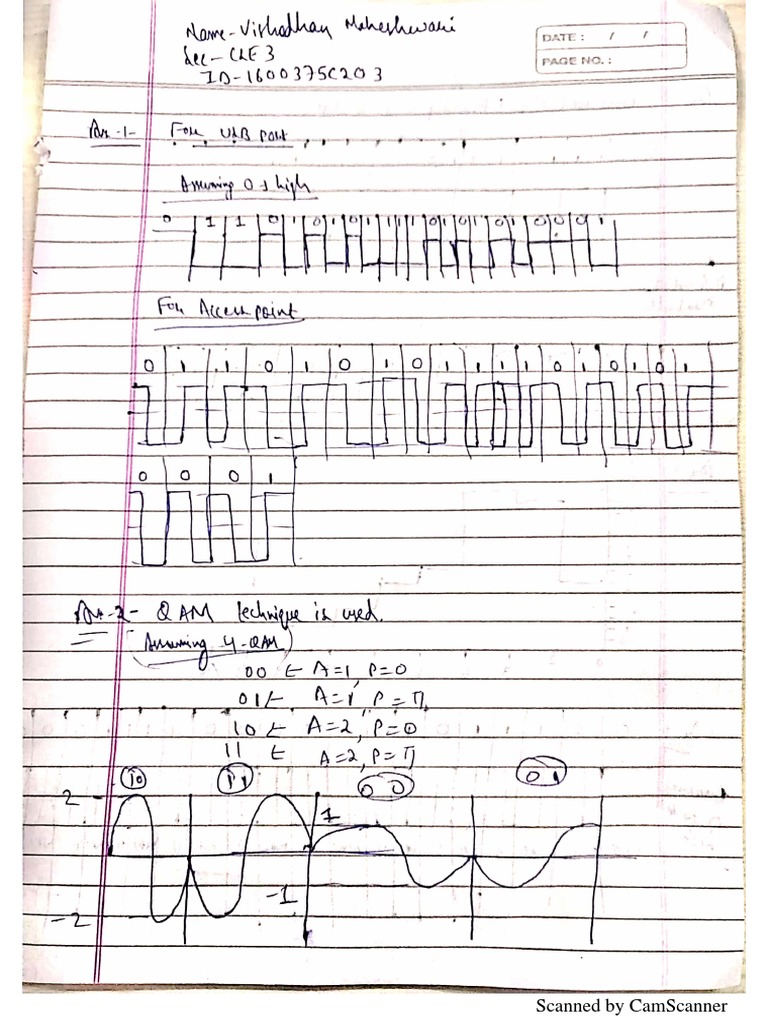 Name - Vishadhan Maheshwari
DATE : / /
Sec - CLE 3
PAGE NO. :
ID - 1600375C203
Ans -1- For USB port
Assuming 0 → high
0 1 1 0 1 0 1 0 1 1 1 1 0 1 0 1 0 1 0 0 0 1
For Access point
0 1 1 0 1 0 1 0 1 1 1 0 1 0 1 0 1
0 0 0 1
Ans -2- QAM technique is used.
(Assuming 4-QAM)
00 A=1, P=0
01 A=1, P=π
10 A=2, P=0
11 A=2, P=π
10 11 00 01
2
1
-1
-2
Scanned by CamScanner